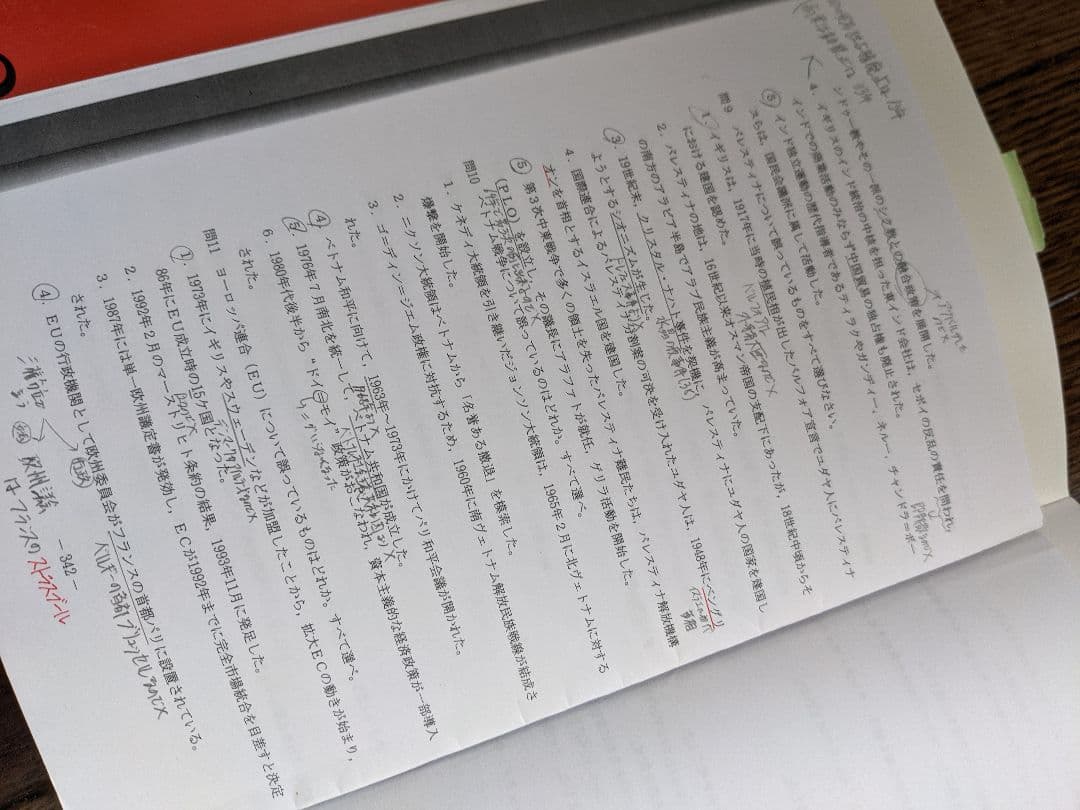 ンドゥー教やその一派のシク教との融合政権を展開した。
4. イギリスのインド統治の中核を担った東インド会社は、セポイの反乱の責任を問われ、
インドでの商業活動のみならず中国貿易の独占権も廃止された。
⑤ インド独立運動の歴代指導者であるティラクやガンディー、ネルー、チャンドラ=ボー
スらは、国民会議派に属して活動した。
問9 パレスティナについて誤っているものをすべて選びなさい。
1 イギリスは、1917年に当時の植民相が出したバルフォア宣言でユダヤ人にパレスティナ
における建国を認めた。
2. パレスティナの地は、16世紀以来オスマン帝国の支配下にあったが、18世紀中頃からそ
の南方のアラビア半島でアラブ民族主義が高まっていた。
③ 19世紀末、クリスタル=ナハト事件を契機に、パレスティナにユダヤ人の国家を建国し
ようとするシオニズムが生じた。
4. 国際連合によるパレスティナ分割案の可決を受け入れたユダヤ人は、1948年にベングリ
オンを首相とするイスラエル国を建国した。
⑤ 第3次中東戦争で多くの領土を失ったパレスティナ難民たちは、パレスティナ解放機構
(PLO)を設立し、その議長にアラファトが就任、ゲリラ活動を開始した。
問10 ヴェトナム戦争について誤っているのはどれか。すべて選べ。
1. ケネディ大統領を引き継いだジョンソン大統領は、1965年2月に北ヴェトナムに対する
爆撃を開始した。
2. ニクソン大統領はベトナムから「名誉ある撤退」を模索した。
3. ゴ=ディン=ジエム政権に対抗するため、1960年に南ヴェトナム解放民族戦線が結成さ
れた。
④ ベトナム和平に向けて、1963年～1973年にかけてパリ和平会議が開かれた。
⑤ 1976年7月南北を統一して、ベトナム共和国が成立した。
6. 1980年代後半から“ドイモイ”政策がおこなわれ、資本主義的な経済政策が一部導入
された。
問11 ヨーロッパ連合(EU)について誤っているものはどれか。すべて選べ。
① 1973年にイギリスやスウェーデンなどが加盟したことから、拡大ECの動きが始まり、
86年にEU成立時の15ケ国となった。
2. 1992年2月のマーストリヒト条約の結果、1993年11月に発足した。
3. 1987年には単一欧州議定書が発効し、ECが1992年までに完全市場統合を目差すと決定
された。
④ EUの行政機関として欧州委員会がフランスの首都パリに設置されている。
ベルギーの首都ブリュッセルなので×
欧州議会
はフランスのストラスブール
－342－